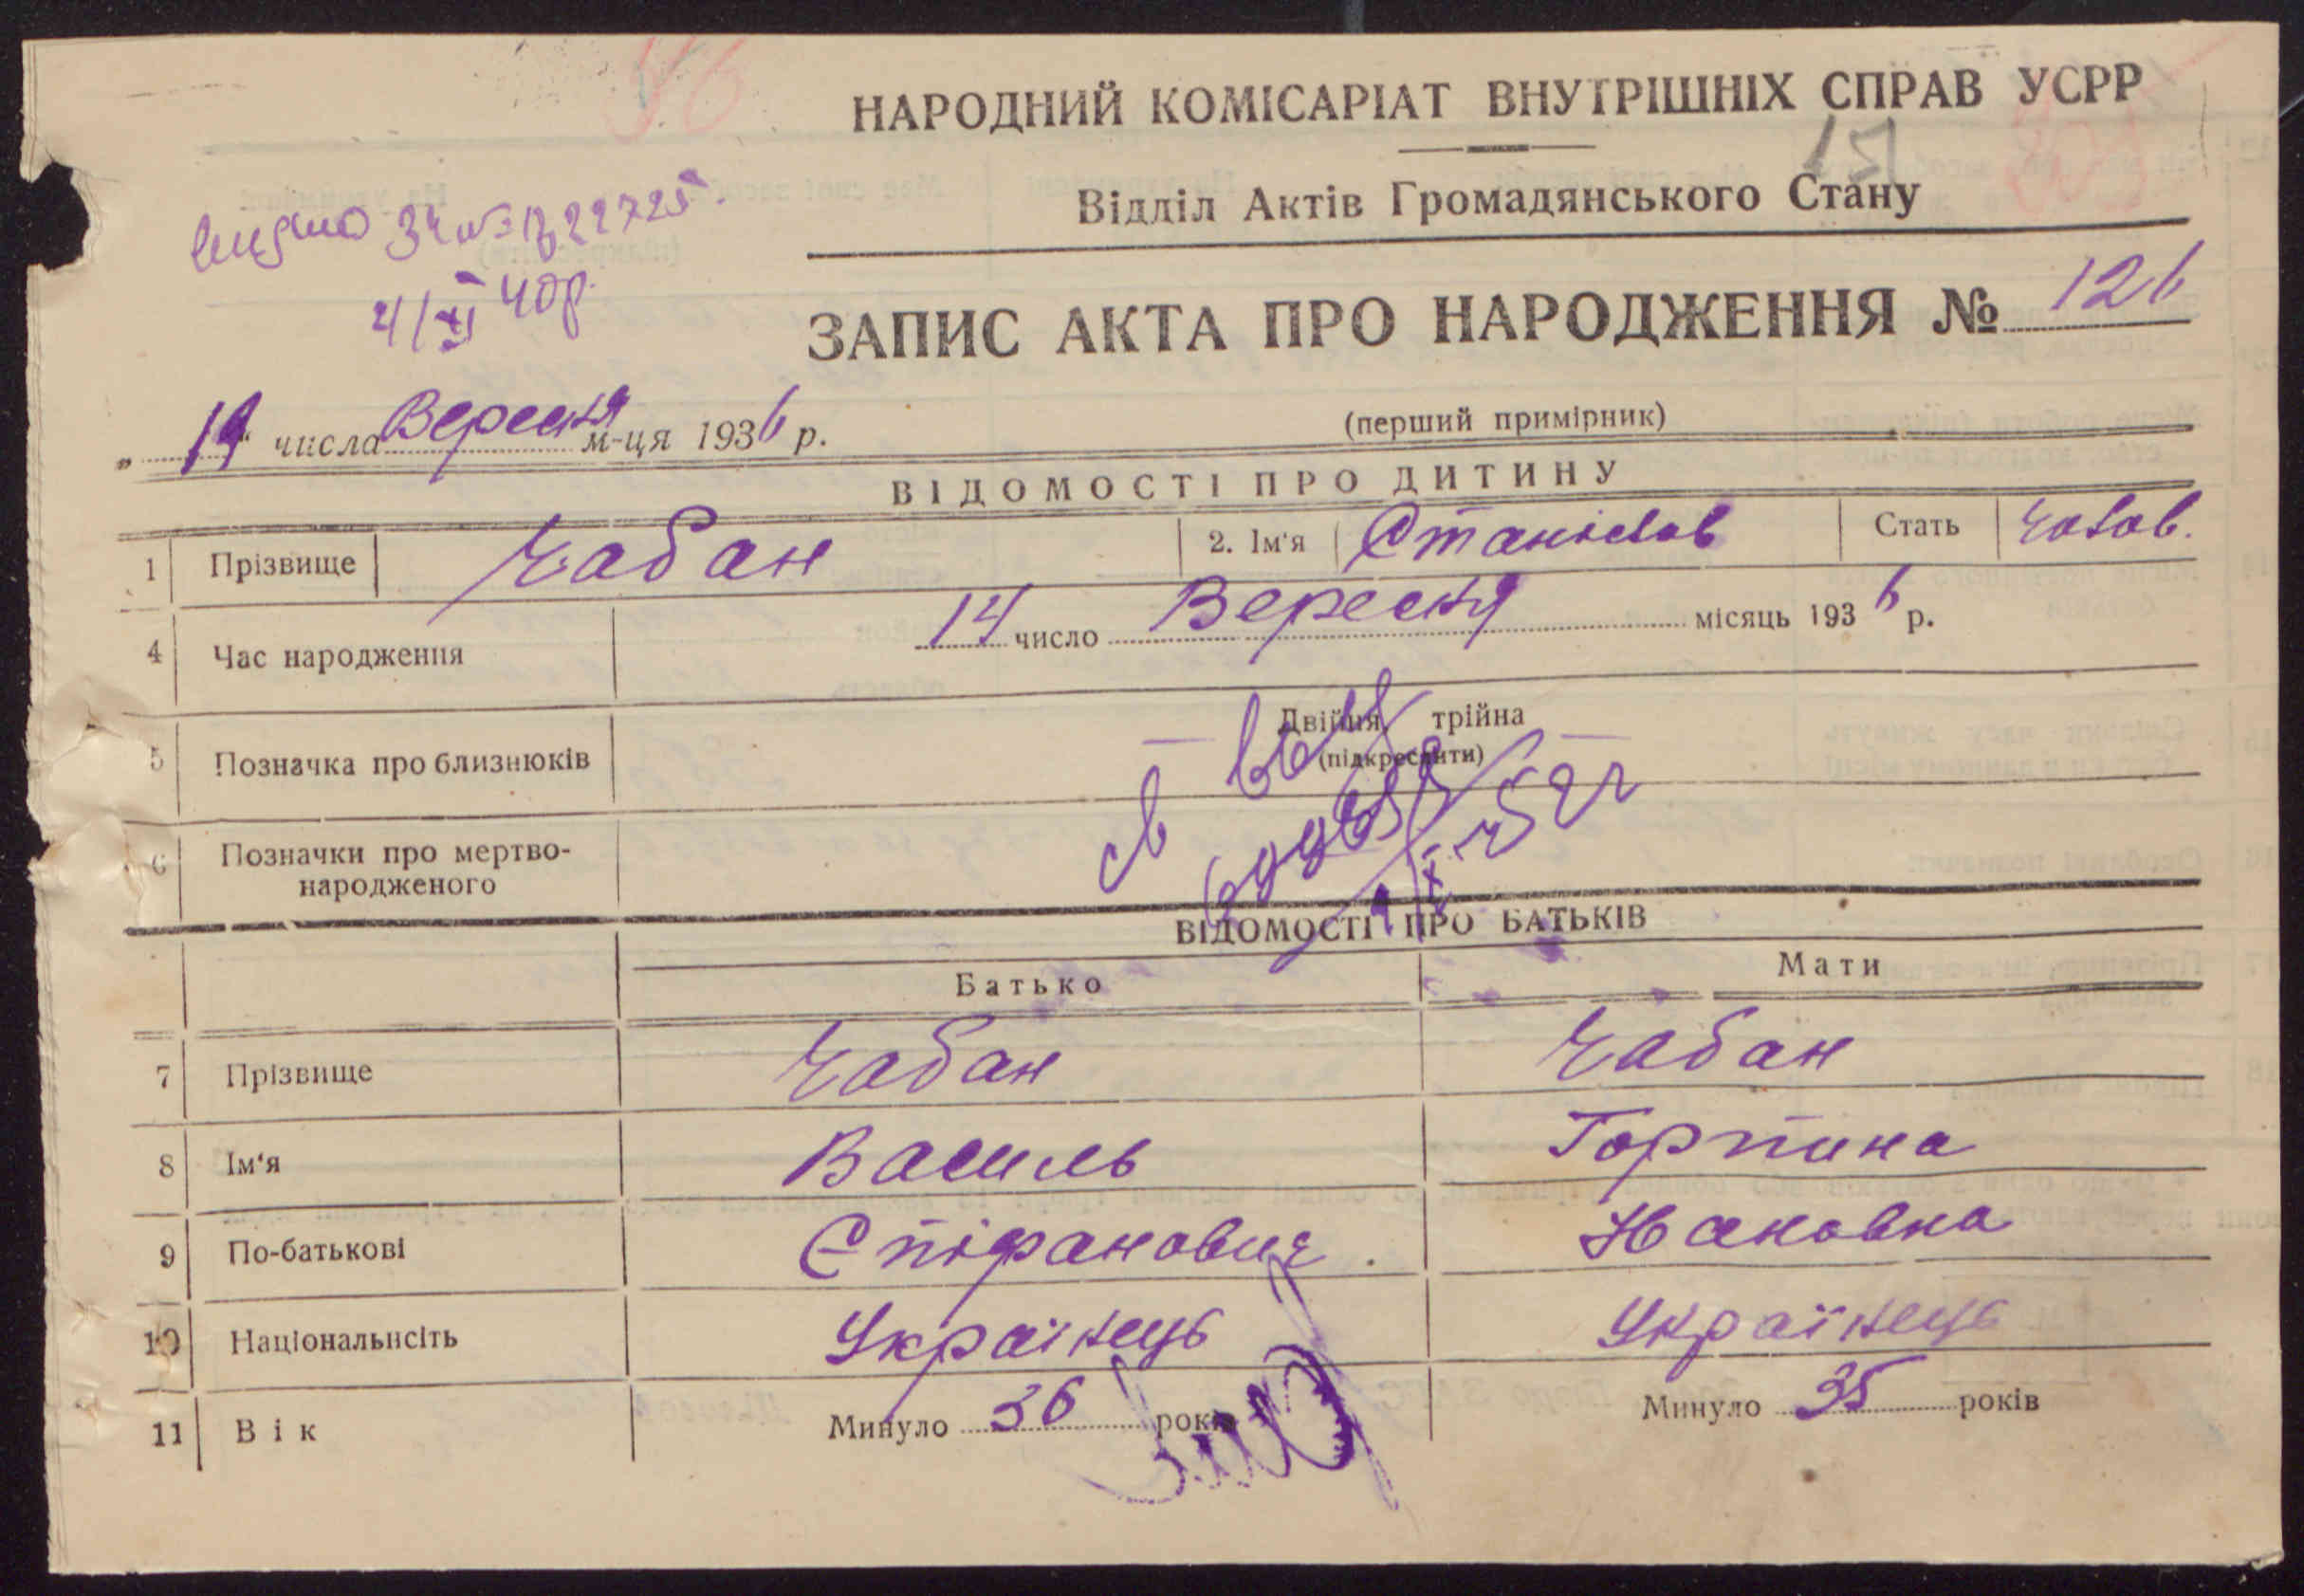 НАРОДНИЙ КОМІСАРІАТ ВНУТРІШНІХ СПРАВ УСРР
Відділ Актів Громадянського Стану
видано
4/XI 40р.
ЗАПИС АКТА ПРО НАРОДЖЕННЯ № 126
„19" числа Вересня м-ця 1936 р.
(перший примірник)
ВІДОМОСТІ ПРО ДИТИНУ
1 Прізвище Чабан 2. Ім'я Станіслав Стать чолов.
4 Час народження 14 число Вересня місяць 1936 р.
5 Позначка про близнюків Двійня, трійна
(підкреслити)
6 Позначки про мертво-
народженого
ВІДОМОСТІ ПРО БАТЬКІВ
Батько Мати
7 Прізвище Чабан Чабан
8 Ім'я Василь Горпина
9 По-батькові Єпіфанович
10 Національнсіть Українець Українець
11 Вік Минуло 36 років Минуло 35 років